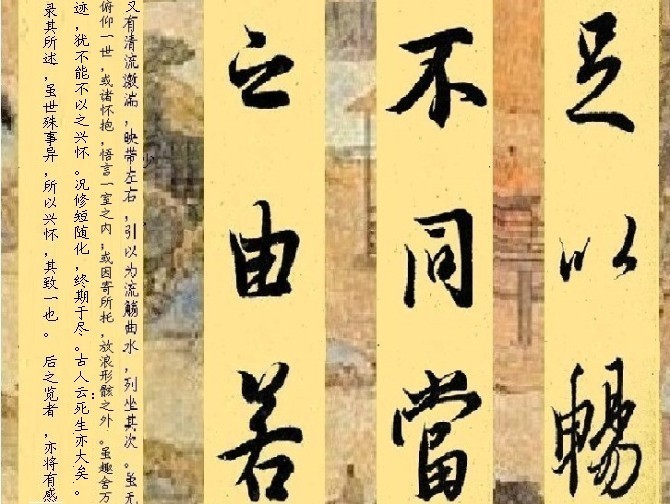 足以暢
不同當
之由若
又有清流激湍，映带左右，引以为流觞曲水，列坐其次。虽无
俯仰一世，或诸怀抱，悟言一室之内；或因寄所托，放浪形骸之外。虽趣舍万
迹，犹不能不以之兴怀。况修短随化，终期于尽。古人云：死生亦大矣。
录其所述，虽世殊事异，所以兴怀，其致一也。后之览者，亦将有感